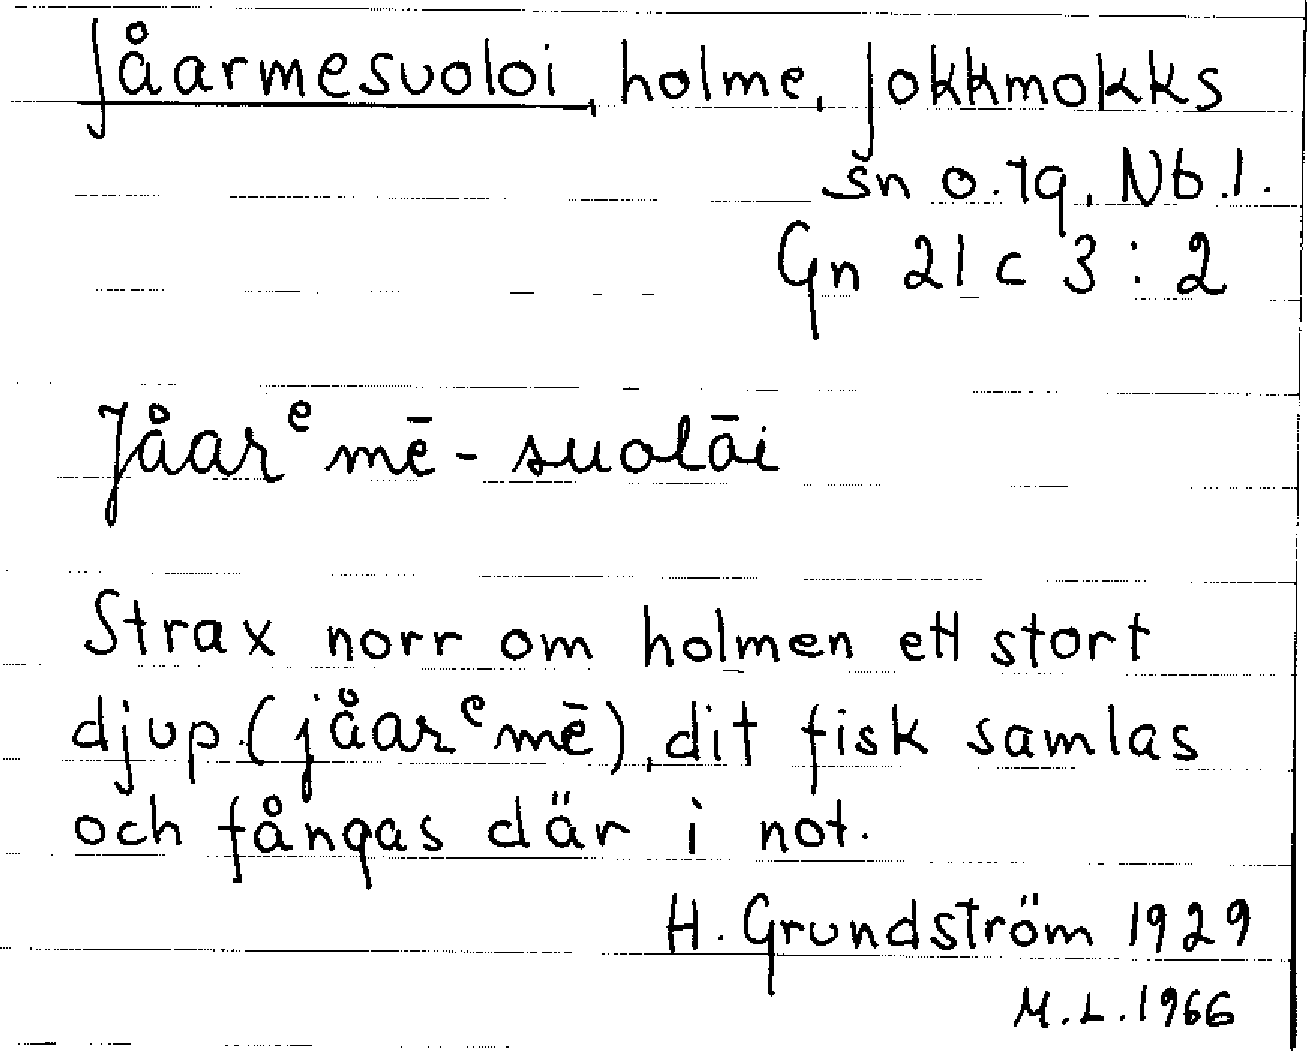 Jåarmesuoloi, holme, Jokkmokks
sn o. tg, Nb. l.
Gn 21 c 3 : 2
Jåarᵉmē-suolāi
Strax norr om holmen ett stort
djup (jåarᵉmē), dit fisk samlas
och fångas där i not.
H. Grundström 1929
M.L. 1966